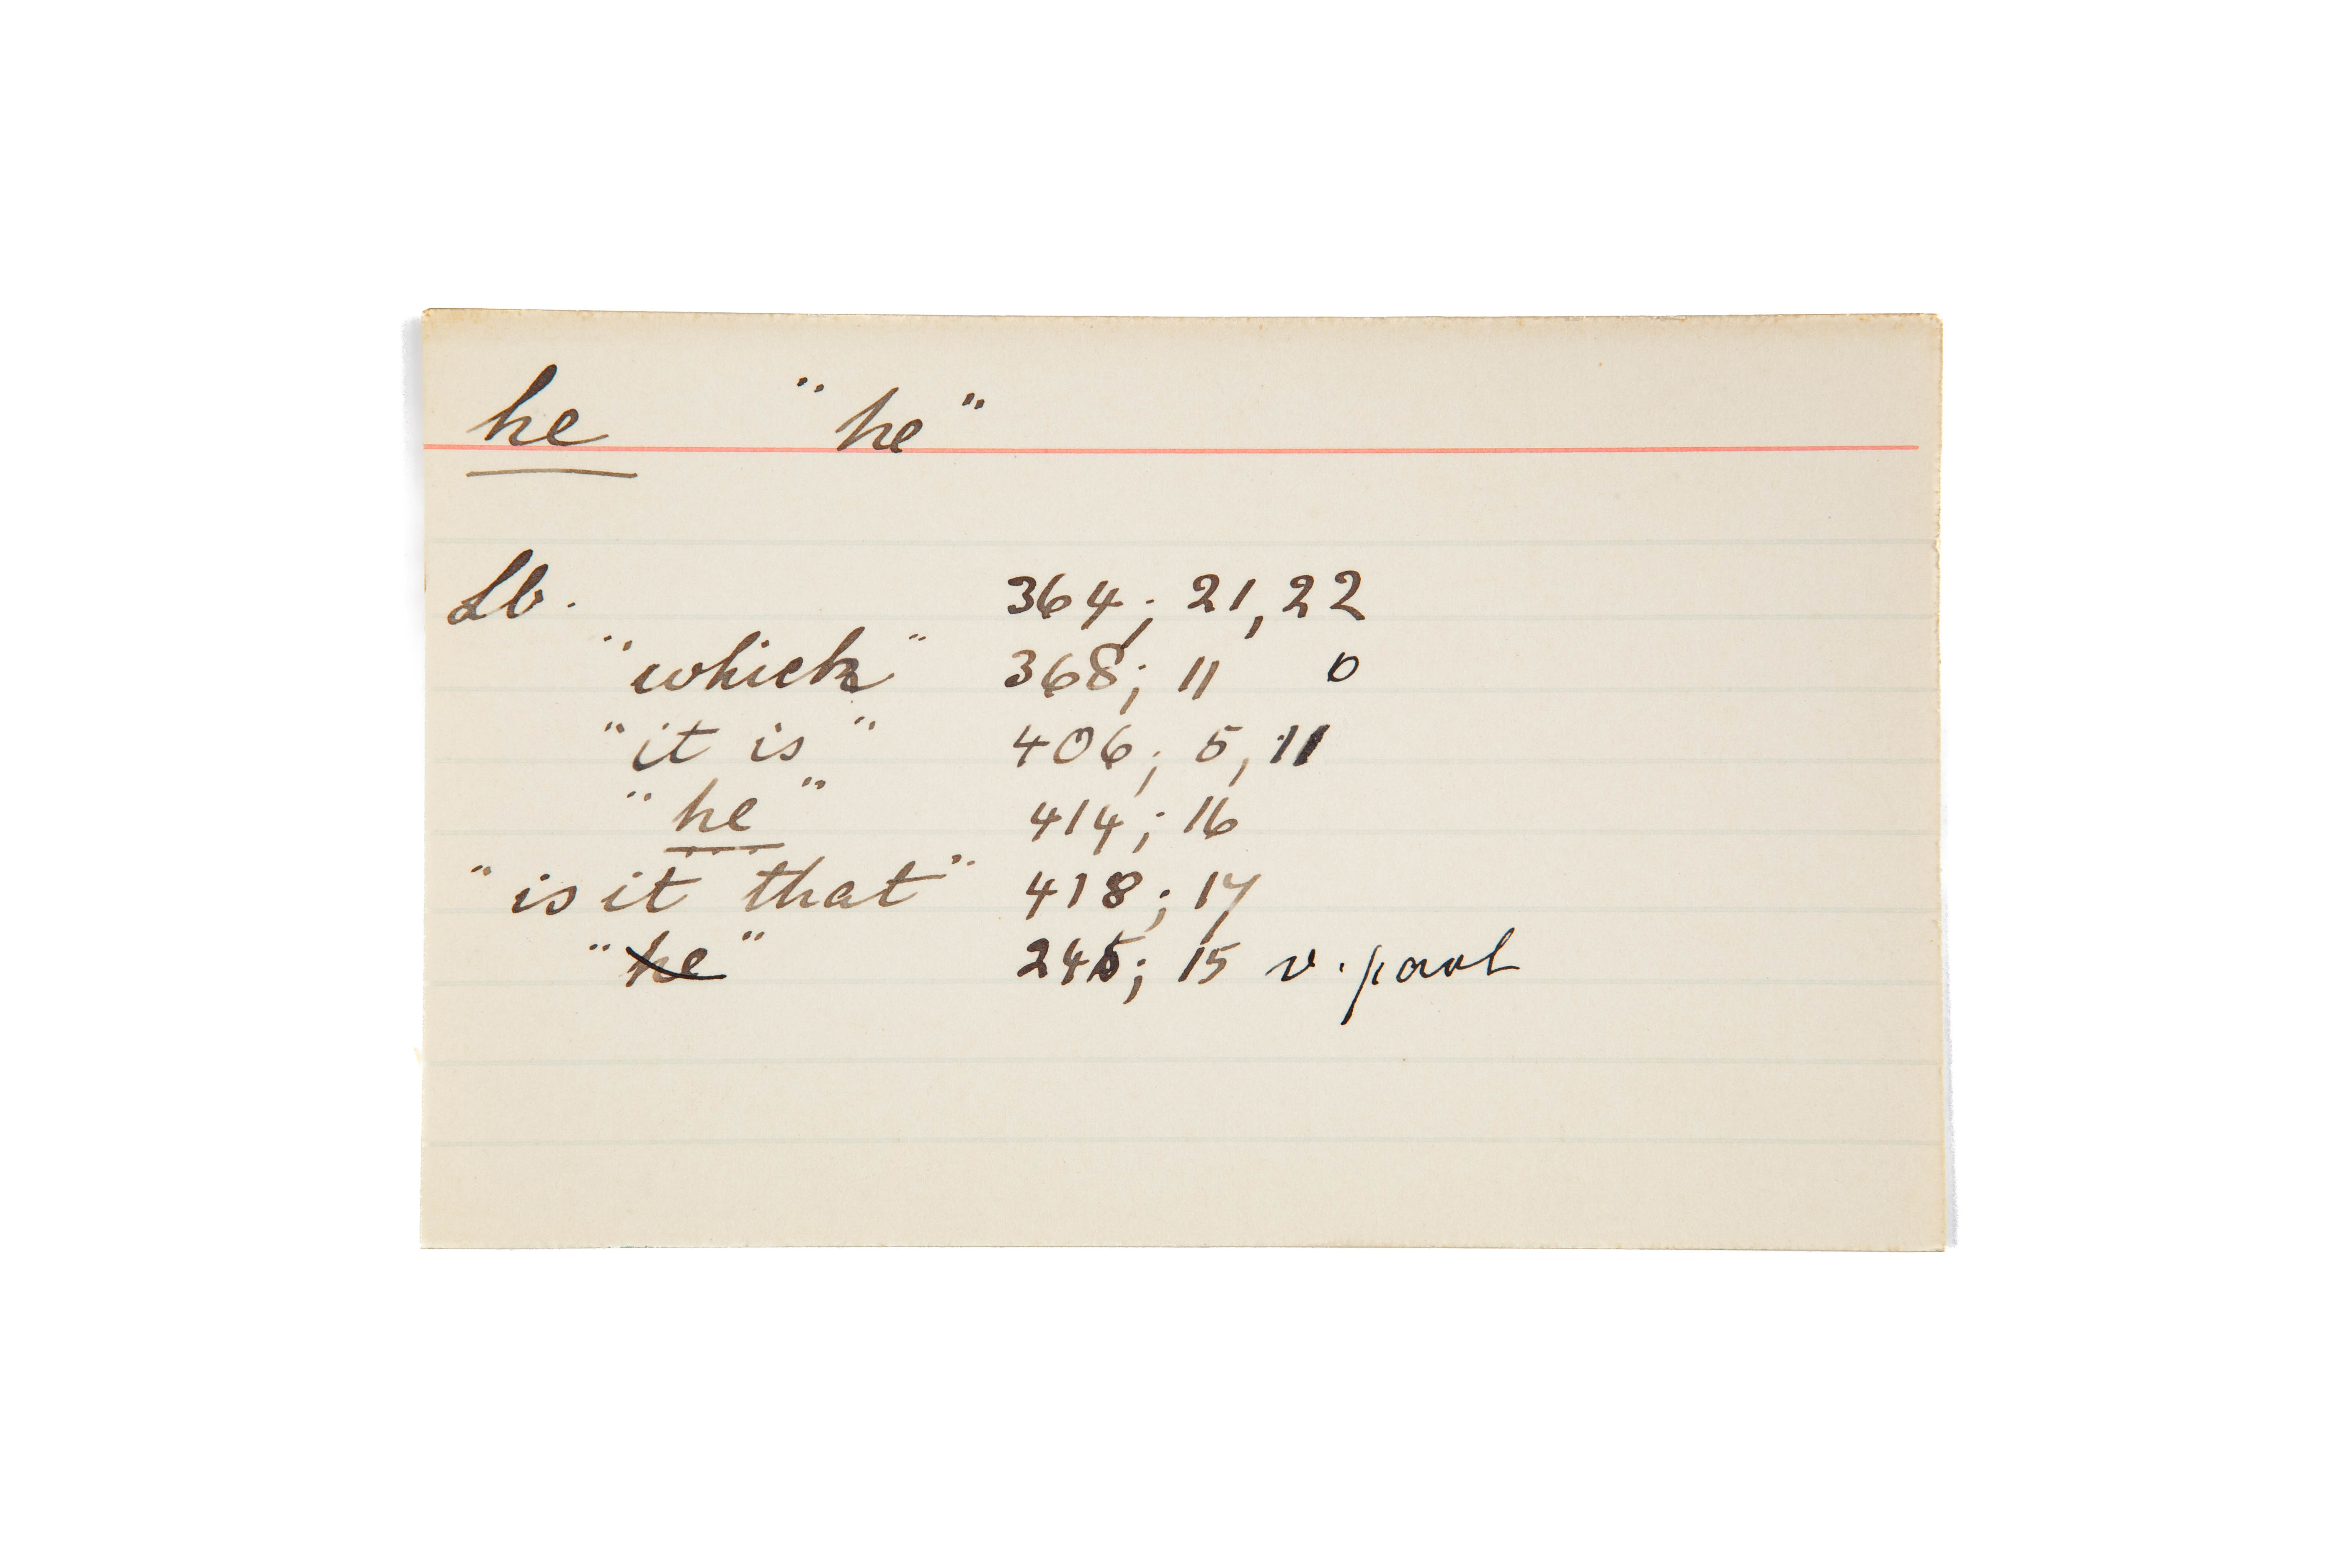 he "he"
Lb. 364; 21, 22
"which" 368; 11 0
"it is" 406; 5, 11
"he" 414; 16
"is it that" 418; 17
"he" 245; 15 v.